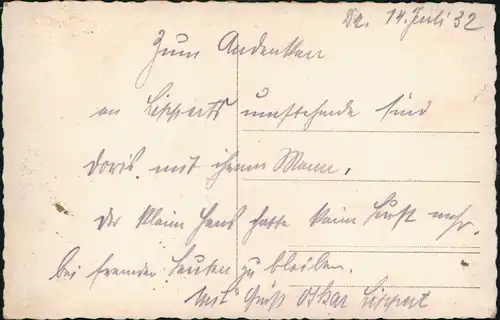 Da. 14. Juli 32
Zum Andenken
an Lipperts umstehende sind
Doris mit ihrem Mann,
der kleine Hans hatte keine Lust mehr,
bei fremden Leuten zu bleiben.
Mit Gruß Oskar Lippert